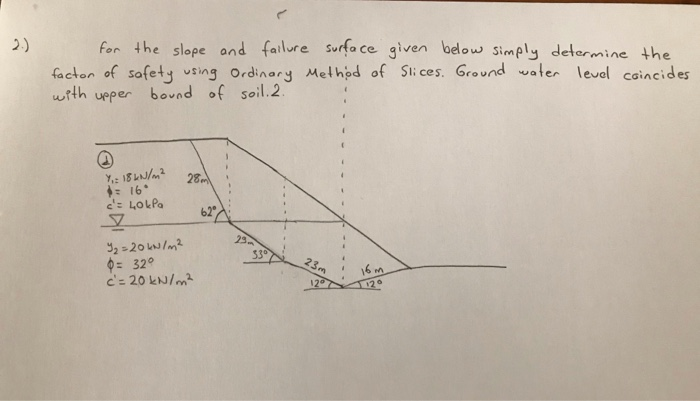 2.) For the slope and failure surface given below simply determine the
factor of safety using Ordinary Method of Slices. Ground water level coincides
with upper bound of soil.2.
①
γ₁= 18 kN/m²
28m
ϕ= 16°
c'= 40kPa
62°
γ₂=20 kN/m²
29m
33°
ϕ= 32°
23m
16m
c'= 20 kN/m²
12°
12°